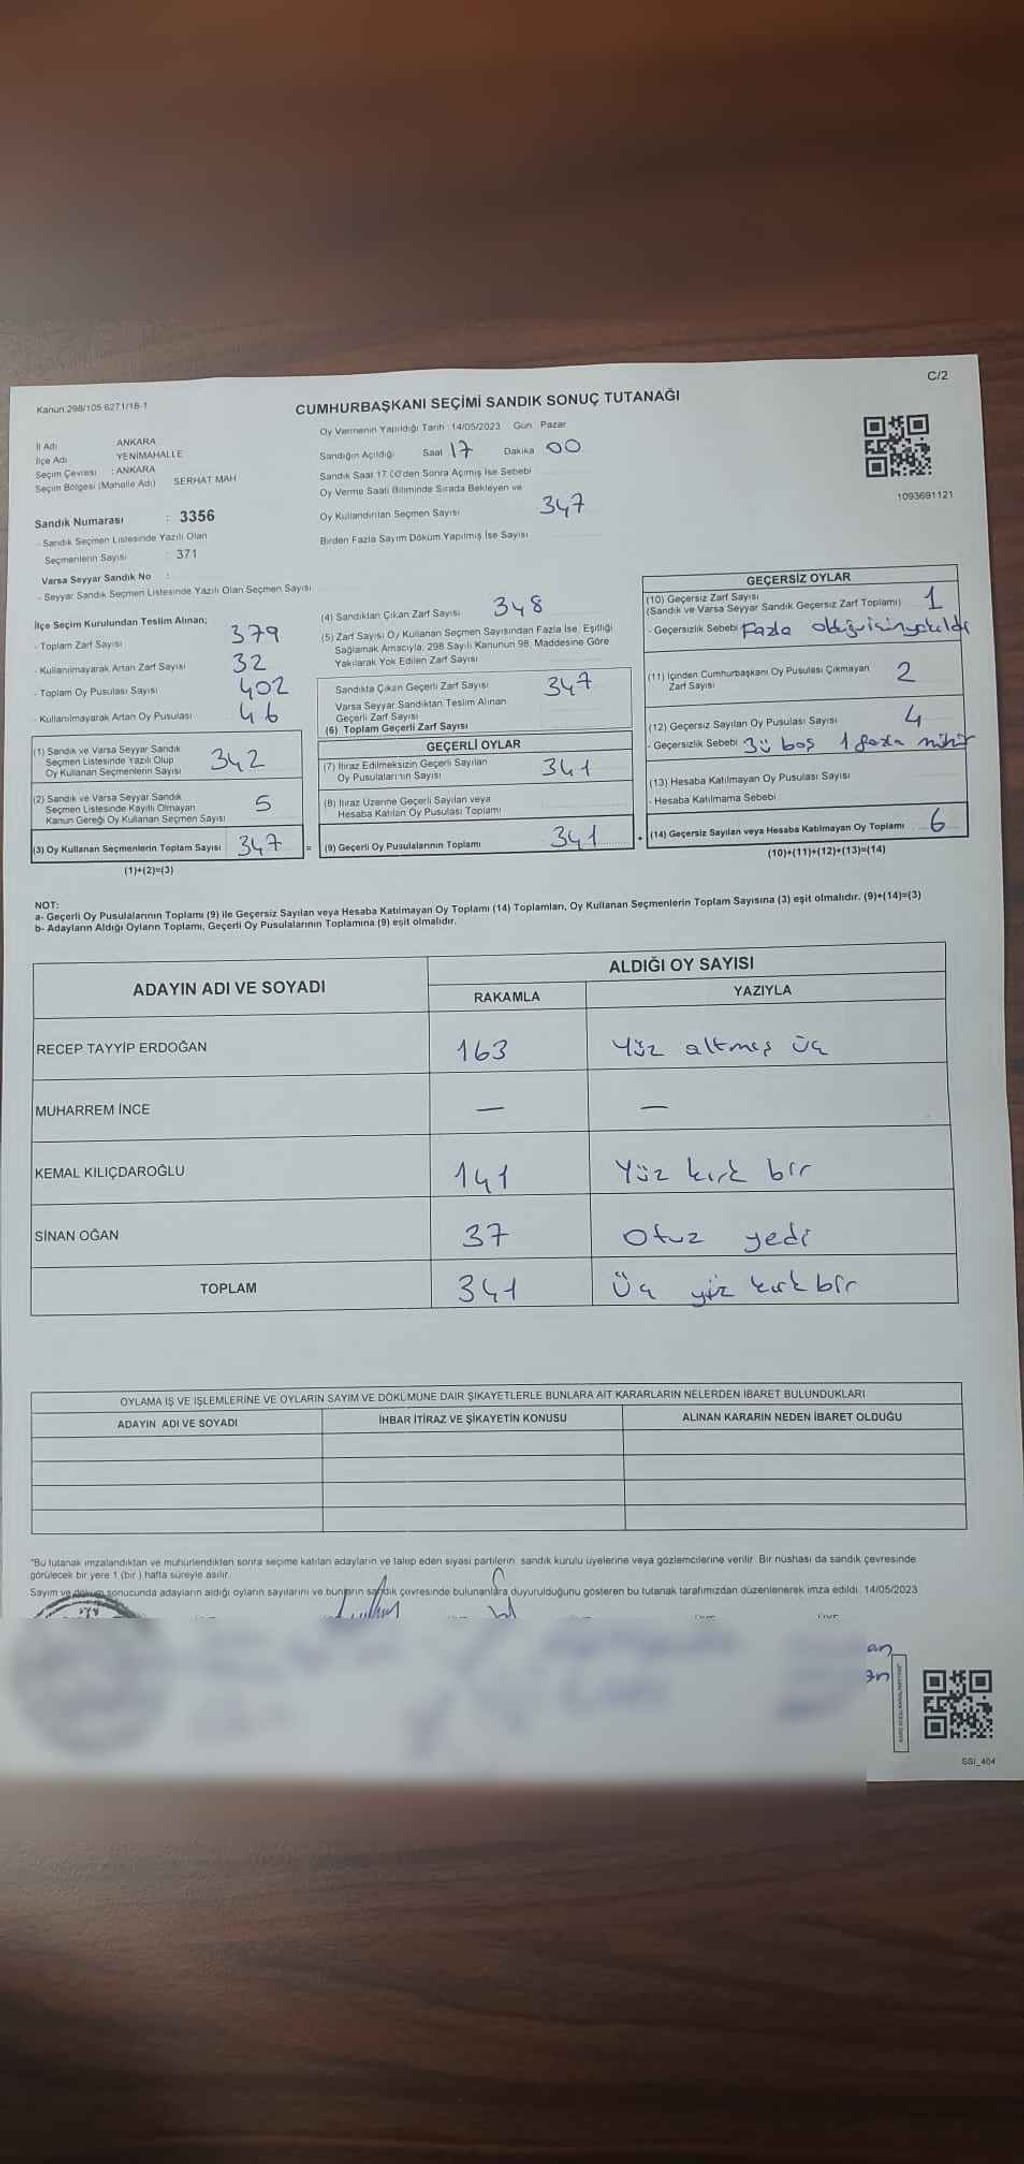 C/2
Kanun 298/105-6271/16-1
CUMHURBAŞKANI SEÇİMİ SANDIK SONUÇ TUTANAĞI
İl Adı : ANKARA
İlçe Adı : YENİMAHALLE
Seçim Çevresi : ANKARA
Seçim Bölgesi (Mahalle Adı) SERHAT MAH
Sandık Numarası : 3356
- Sandık Seçmen Listesinde Yazılı Olan
Seçmenlerin Sayısı : 371
Varsa Seyyar Sandık No :
- Seyyar Sandık Seçmen Listesinde Yazılı Olan Seçmen Sayısı
Oy Vermenin Yapıldığı Tarih 14/05/2023 Gün Pazar
Sandığın Açıldığı Saat 17 Dakika 00
Sandık Saat 17.00'den Sonra Açılmış İse Sebebi
Oy Verme Saati Bitiminde Sırada Bekleyen ve
Oy Kullandırılan Seçmen Sayısı 347
Birden Fazla Sayım Döküm Yapılmış İse Sayısı
1093691121
İlçe Seçim Kurulundan Teslim Alınan;
- Toplam Zarf Sayısı 379
- Kullanılmayarak Artan Zarf Sayısı 32
- Toplam Oy Pusulası Sayısı 402
- Kullanılmayarak Artan Oy Pusulası 46
(1) Sandık ve Varsa Seyyar Sandık
Seçmen Listesinde Yazılı Olup
Oy Kullanan Seçmenlerin Sayısı 342
(2) Sandık ve Varsa Seyyar Sandık
Seçmen Listesinde Kayıtlı Olmayan
Kanun Gereği Oy Kullanan Seçmen Sayısı 5
(3) Oy Kullanan Seçmenlerin Toplam Sayısı 347
(1)+(2)=(3)
(4) Sandıktan Çıkan Zarf Sayısı 348
(5) Zarf Sayısı Oy Kullanan Seçmen Sayısından Fazla İse, Eşitliği
Sağlamak Amacıyla, 298 Sayılı Kanunun 98. Maddesine Göre
Yakılarak Yok Edilen Zarf Sayısı
Sandıkta Çıkan Geçerli Zarf Sayısı 347
Varsa Seyyar Sandıktan Teslim Alınan
Geçerli Zarf Sayısı
(6) Toplam Geçerli Zarf Sayısı
GEÇERLİ OYLAR
(7) İtiraz Edilmeksizin Geçerli Sayılan
Oy Pusulalarının Sayısı 341
(8) İtiraz Üzerine Geçerli Sayılan veya
Hesaba Katılan Oy Pusulası Toplamı
= (9) Geçerli Oy Pusulalarının Toplamı 341
GEÇERSİZ OYLAR
(10) Geçersiz Zarf Sayısı 1
(Sandık ve Varsa Seyyar Sandık Geçersiz Zarf Toplamı)
- Geçersizlik Sebebi Fazla olduğu için yakıldı
(11) İçinden Cumhurbaşkanı Oy Pusulası Çıkmayan
Zarf Sayısı 2
(12) Geçersiz Sayılan Oy Pusulası Sayısı 4
- Geçersizlik Sebebi 3ü boş 1 fazla mühür
(13) Hesaba Katılmayan Oy Pusulası Sayısı
- Hesaba Katılmama Sebebi
+ (14) Geçersiz Sayılan veya Hesaba Katılmayan Oy Toplamı 6
(10)+(11)+(12)+(13)=(14)
NOT:
a- Geçerli Oy Pusulalarının Toplamı (9) ile Geçersiz Sayılan veya Hesaba Katılmayan Oy Toplamı (14) Toplamları, Oy Kullanan Seçmenlerin Toplam Sayısına (3) eşit olmalıdır. (9)+(14)=(3)
b- Adayların Aldığı Oyların Toplamı, Geçerli Oy Pusulalarının Toplamına (9) eşit olmalıdır.
ADAYIN ADI VE SOYADI
ALDIĞI OY SAYISI
RAKAMLA YAZIYLA
RECEP TAYYİP ERDOĞAN 163 Yüz altmış üç
MUHARREM İNCE — —
KEMAL KILIÇDAROĞLU 141 Yüz kırk bir
SİNAN OĞAN 37 Otuz yedi
TOPLAM 341 Üç yüz kırk bir
OYLAMA İŞ VE İŞLEMLERİNE VE OYLARIN SAYIM VE DÖKÜMÜNE DAİR ŞİKAYETLERLE BUNLARA AİT KARARLARIN NELERDEN İBARET BULUNDUKLARI
ADAYIN ADI VE SOYADI İHBAR İTİRAZ VE ŞİKAYETİN KONUSU ALINAN KARARIN NEDEN İBARET OLDUĞU
"Bu tutanak imzalandıktan ve mühürlendikten sonra seçime katılan adayların ve talep eden siyasi partilerin sandık kurulu üyelerine veya gözlemcilerine verilir. Bir nüshası da sandık çevresinde
görülecek bir yere 1 (bir) hafta süreyle asılır.
Sayım ve döküm sonucunda adayların aldığı oyların sayılarını ve bunların sandık çevresinde bulunanlara duyurulduğunu gösteren bu tutanak tarafımızdan düzenlenerek imza edildi. 14/05/2023
SSI_404